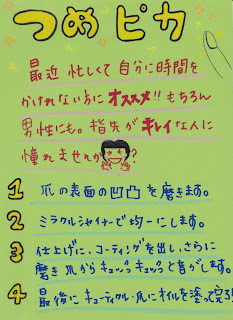 つめピカ
最近 忙しくて 自分に時間を
かけれない方に オススメ!! もちろん
男性にも。指先が キレイな人に
憧れませんか?
1 爪の表面の凹凸を磨きます。
2 ミラクルシャイナーで均一にします。
3 仕上げに、コーティングを出し、さらに
磨き 爪から キュッッ キュッッ と音がします。
4 最後に キューティクル・爪にオイルを塗って完了!